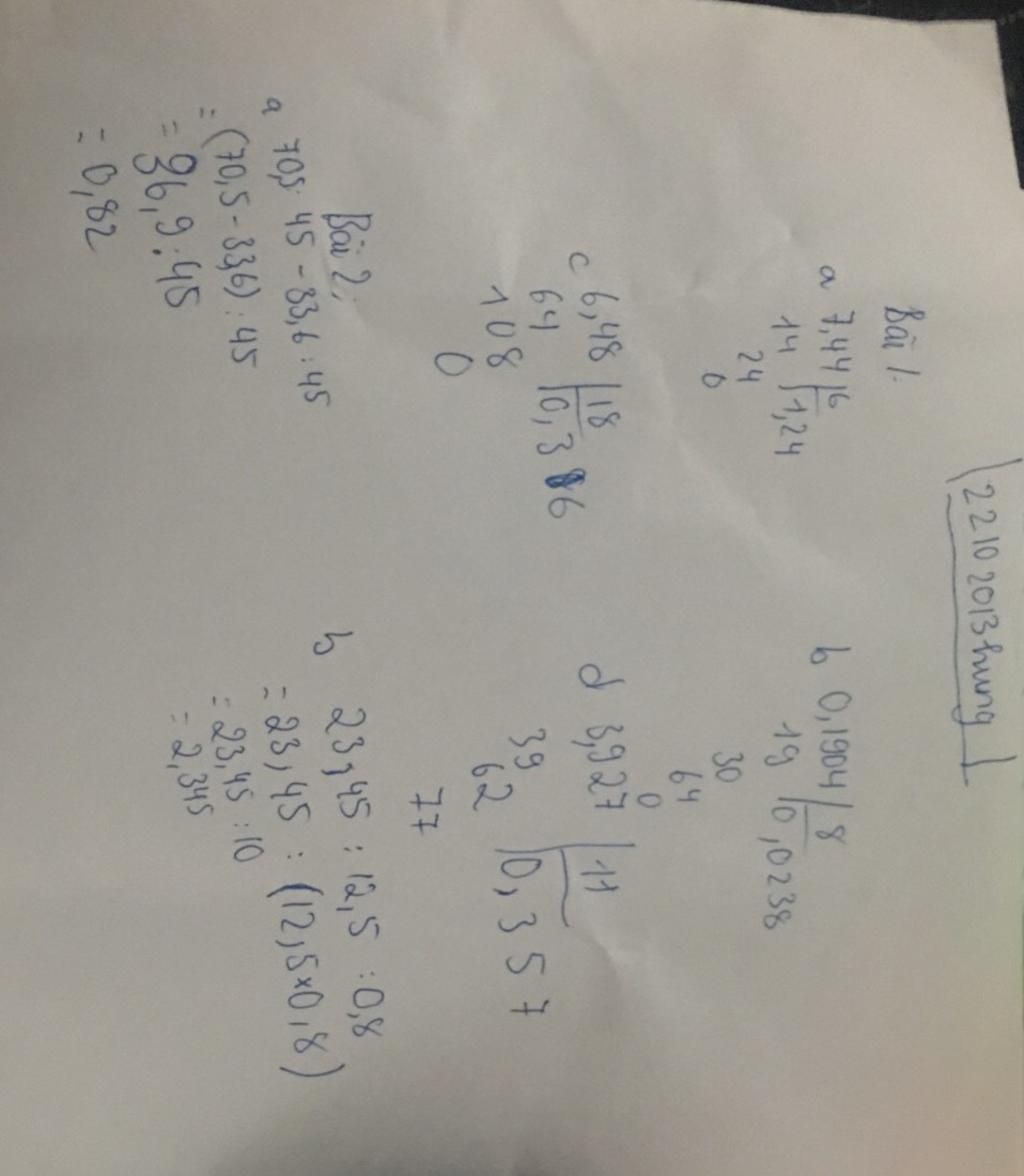 22102013hung
Bài 1.
a 7,44 6
14 1,24
24
0
b 0,1904 8
19 0,0238
30
64
0
c 6,48 18
64 0,36
108
0
d 3,927 11
39 0,357
62
77
Bài 2;
a 70,5: 45 - 33,6 : 45
= (70,5 - 33,6) : 45
= 36,9 : 45
= 0,82
b 23,45 : 12,5 : 0,8
= 23,45 : (12,5x0,8)
= 23,45 : 10
= 2,345